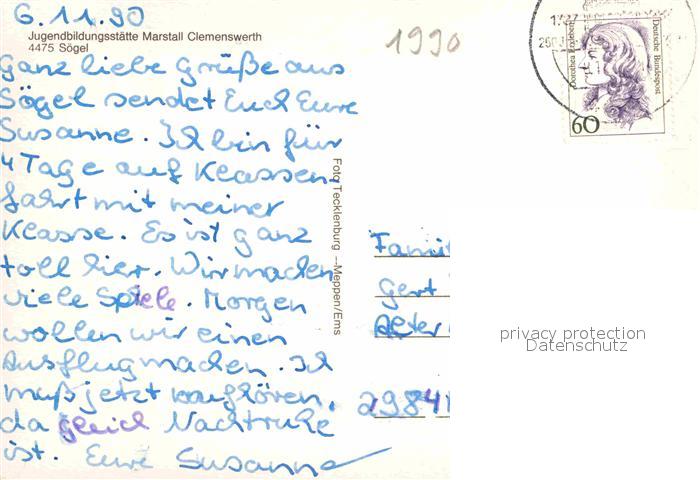 6.11.90
Jugendbildungsstätte Marstall Clemenswerth
4475 Sögel
1990
Ganz liebe Grüße aus
Sögel sendet Euch Eure
Susanne. Ich bin für
4 Tage auf Klassen-
fahrt mit meiner
Klasse. Es ist ganz
toll hier. Wir machen
viele Spiele. Morgen
wollen wir einen
Ausflug machen. Ich
muß jetzt aufhören,
da gleich Nachtruhe
ist. Eure Susanne
Foto Tecklenburg – Meppen/Ems
Deutsche Bundespost
Dorothea Erxleben
60
Famil
Gert
Alter
2984
privacy protection
Datenschutz